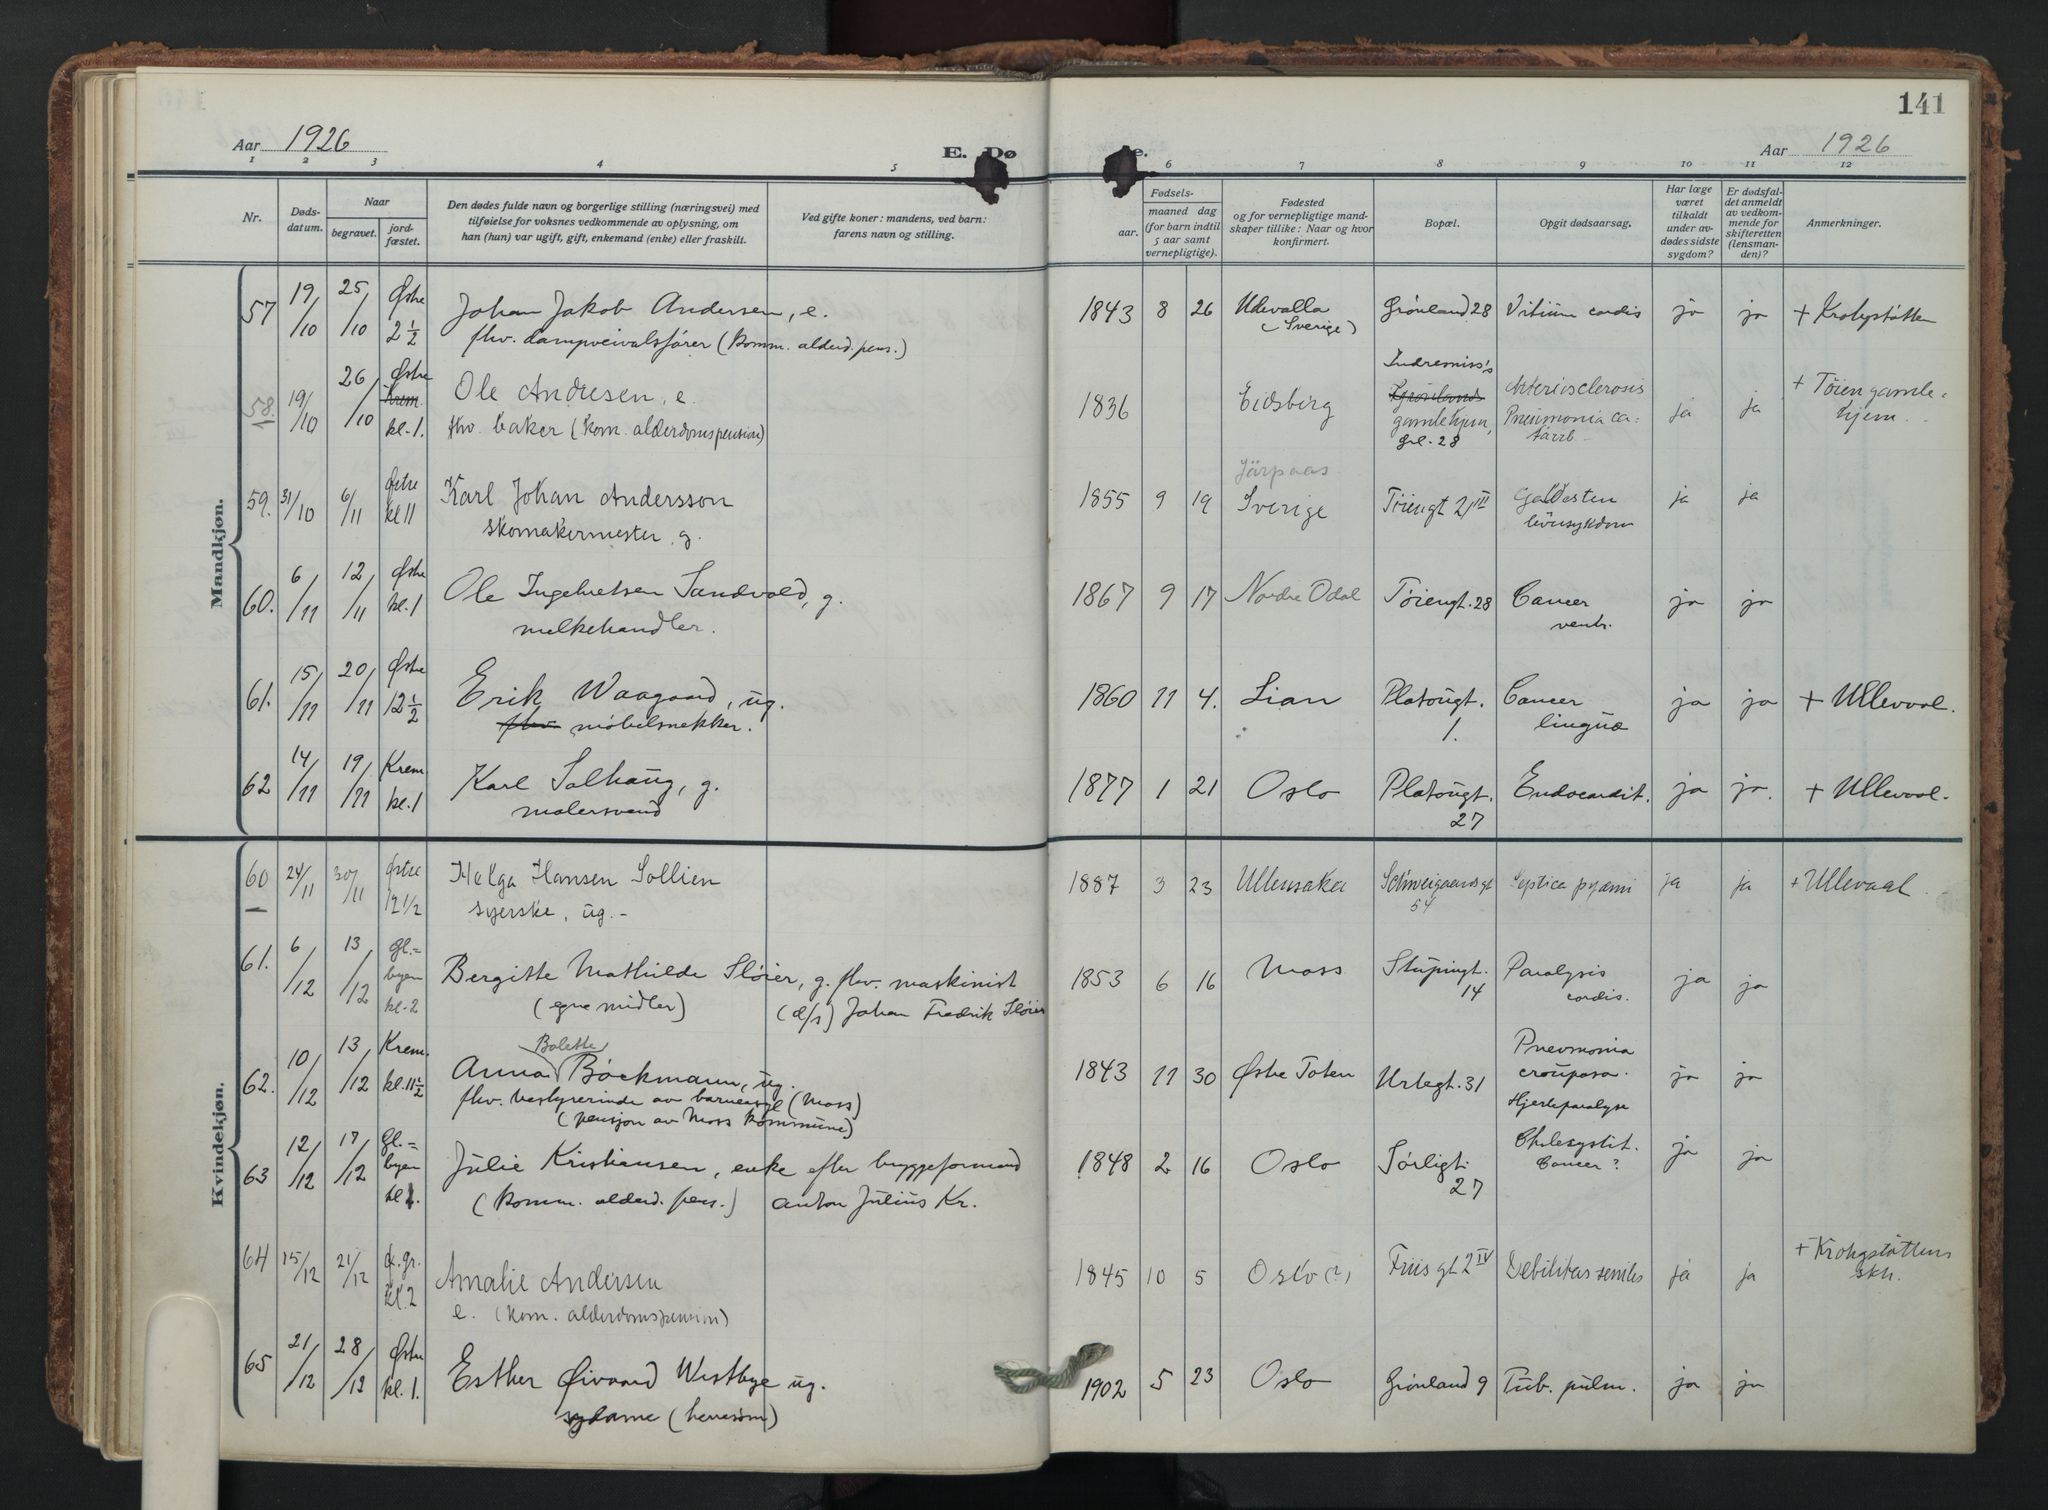 141
Aar 1926
E. Dø
e.
Aar 1926
1 2 3 4 5 6 7 8 9 10 11 12
Nr.
Døds-
datum.
Naar
begravet.
jord-
fæstet.
Den dødes fulde navn og borgerlige stilling (næringsvei) med
tilføielse for voksnes vedkommende av oplysning, om
han (hun) var ugift, gift, enkemand (enke) eller fraskilt.
Ved gifte koner: mandens, ved barn:
farens navn og stilling.
Fødsels-
aar.
maaned dag
(for barn indtil
5 aar samt
vernepligtige).
Fødested
og for vernepligtige mand-
skaper tillike: Naar og hvor
konfirmert.
Bopæl.
Opgit dødsaarsag.
Har læge
været
tilkaldt
under av-
dødes sidste
sygdom?
Er dødsfal-
det anmeldt
av vedkom-
mende for
skifteretten
(lensman-
den)?
Anmerkninger.
Mandkjøn.
57 19/10 25/10 Østre 2½ Johan Jakob Andersen, e. 1843 8 26 Udevalla Grønland 28 Vitium cordis ja ja + Krohgstøtten
fhv. dampveivalsfører (komm. alderd. pens.) (Sverige)
58. 19/10 26/10 Østre Krem. kl. 1. Ole Andresen, e. 1836 Eidsberg Indremiss's Grønlands Arteriosclerosis ja ja + Tøien gamle-
fhv. baker (kom. alderdomspension) gamlehjem, Pneumonia ca- hjem.
Grl. 28 tarrh
Järpaas
59. 31/10 6/11 Østre kl 11 Karl Johan Andersson 1855 9 19 Sverige Tøiengt 21 III Galdesten ja ja
skomakermester, g. leversykdom
60. 6/11 12/11 Østre kl. 1 Ole Ingebretsen Sandvold, g. 1867 9 17 Nordre Odal Tøiengt. 28 Cancer ja ja
melkehandler. ventr.
61. 15/11 20/11 Østre 12½ Erik Waagaard, ug. 1860 11 4. Lian Platougt. Cancer ja ja + Ullevaal.
fhv. møbelsnekker. 1. linguæ
62 14/11 19/11 Krem. kl. 1 Karl Solhaug, g. 1877 1 21 Oslo Platougt. Endocardit. ja ja. + Ullevaal.
malersvend 27
Kvindekjøn.
60 24/11 30/11 Østre 12 1/2 Helga Hansen Sollien 1887 3 23 Ullensaker Schweigaardsgt Septica pyæmi ja ja + Ullevaal
syerske, ug. - 54
61. 6/12 13/12 Gl.-byen kl. 2 Bergitte Mathilde Sløier, g. fhv. maskinist 1853 6 16 Moss Stupingt. Paralysis ja ja
(egne midler) (d/s) Johan Fredrik Sløier 14 cordis.
62. 10/12 13/12 Krem. kl. 11½ Anna Bolette Bøckmann, ug. 1843 11 30 Østre Toten Urtegt. 31 Pnevmonia ja ja
fhv. bestyrerinde av barneasyl (Moss) crouposa.
(pensjon av Moss kommune) Hjerteparalyse
63 12/12 17/12 Gl.-byen kl 1. Julie Kristiansen, enke efter bryggeformand 1848 2 16 Oslo Sørligt. Cholesystit. ja ja
(komm. alderd. pens.) Anton Julius Kr. 27 Cancer?
64 15/12 21/12 Ø. gr. kl. 2 Amalie Andersen 1845 10 5 Oslo (?) Friis gt 2 IV Debilitas senilis ja ja + Krohgstøttens
e. (kom. alderdomspension) skh.
65 21/12 28/12 Østre kl. 1. Esther Øivaard Westbye ug. 1902 5 23 Oslo Grønland 9 Tub. pulm. ja ja
sydame (herresøm)